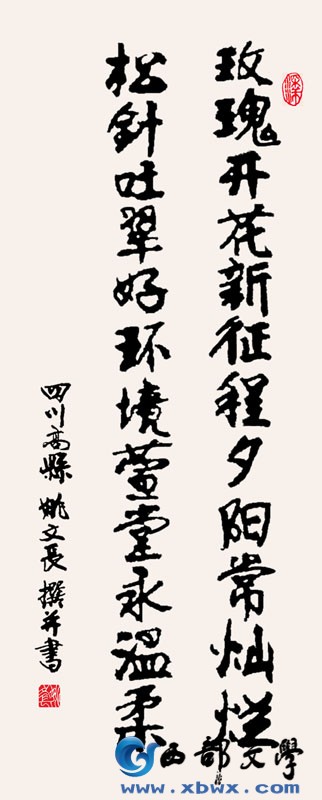 玫瑰开花新征程夕阳常灿烂
松針吐翠好环境萱堂永温柔
四川高縣姚文長撰并書
西部文學
www.xbwx.com